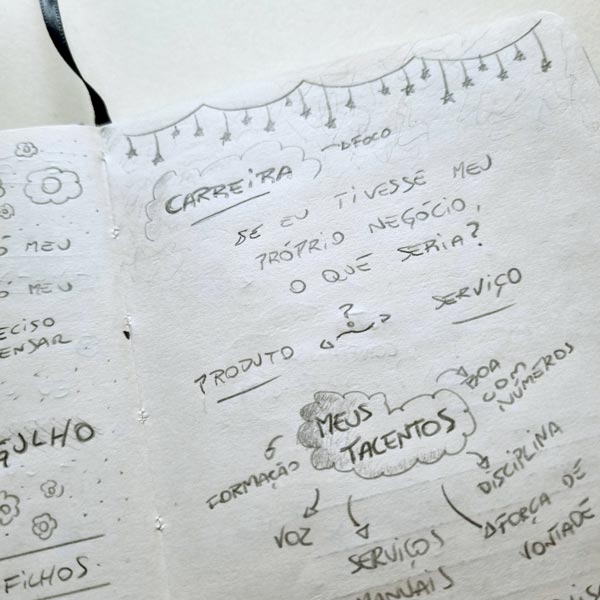 Ó MEU
Ó MEU
ECISO
ENSAR
GULHO
FILHOS.
CARREIRA
FOCO
SE EU TIVESSE MEU
PRÓPRIO NEGÓCIO,
O QUE SERIA?
PRODUTO ? SERVIÇO
MEUS
TALENTOS
BOA
COM
NÚMEROS
DISCIPLINA
FORÇA DE
VONTADE
SERVIÇOS
MANUAIS
VOZ
FORMAÇÃO